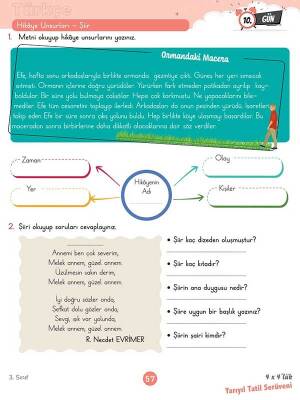 Türkçe
10.
GÜN
Hikâye Unsurları - Şiir
1. Metni okuyup hikâye unsurlarını yazınız.
Ormandaki Macera
Efe, hafta sonu arkadaşlarıyla birlikte ormanda gezintiye çıktı. Güneş her yeri ısıtacak
olmıştı. Ormanın içlerine doğru yürüdüler. Yürürken fark etmeden patikadan ayrılıp kay-
boldular. Bir süre yolu bulmaya çalıştılar. Hepsi çok korkmuştu. Ne yapacaklarını bile-
mediler. Efe tüm cesaretini toplayıp ilerledi. Arkadaşları da onun peşinden yürüdü. İşaretleri
takip eden Efe bir süre sonra çıkış yolunu buldu. Hep birlikte köye ulaşmayı başardılar. Bu
maceradan sonra birbirlerine daha dikkatli olacaklarına dair söz verdiler.
Zaman
Olay
Hikâyenin
Adı
Yer
Kişiler
2. Şiiri okuyup soruları cevaplayınız.
Annemi ben çok severim,
Melek annem, güzel annem.
Üzülmesin sakın derim,
Melek annem, güzel annem.
İyi doğru sözler onda,
Şefkat dolu gözler onda,
Sevgi, ışık var yolunda,
Melek annem, güzel annem.
R. Necdet EVRİMER
• Şiir kaç dizeden oluşmuştur?
• Şiir kaç kıtadır?
• Şiirin ana duygusu nedir?
• Şiire uygun bir başlık yazınız?
• Şiirin şairi kimdir?
3. Sınıf
57
4 x 4'lük
Yarıyıl Tatil Serüveni